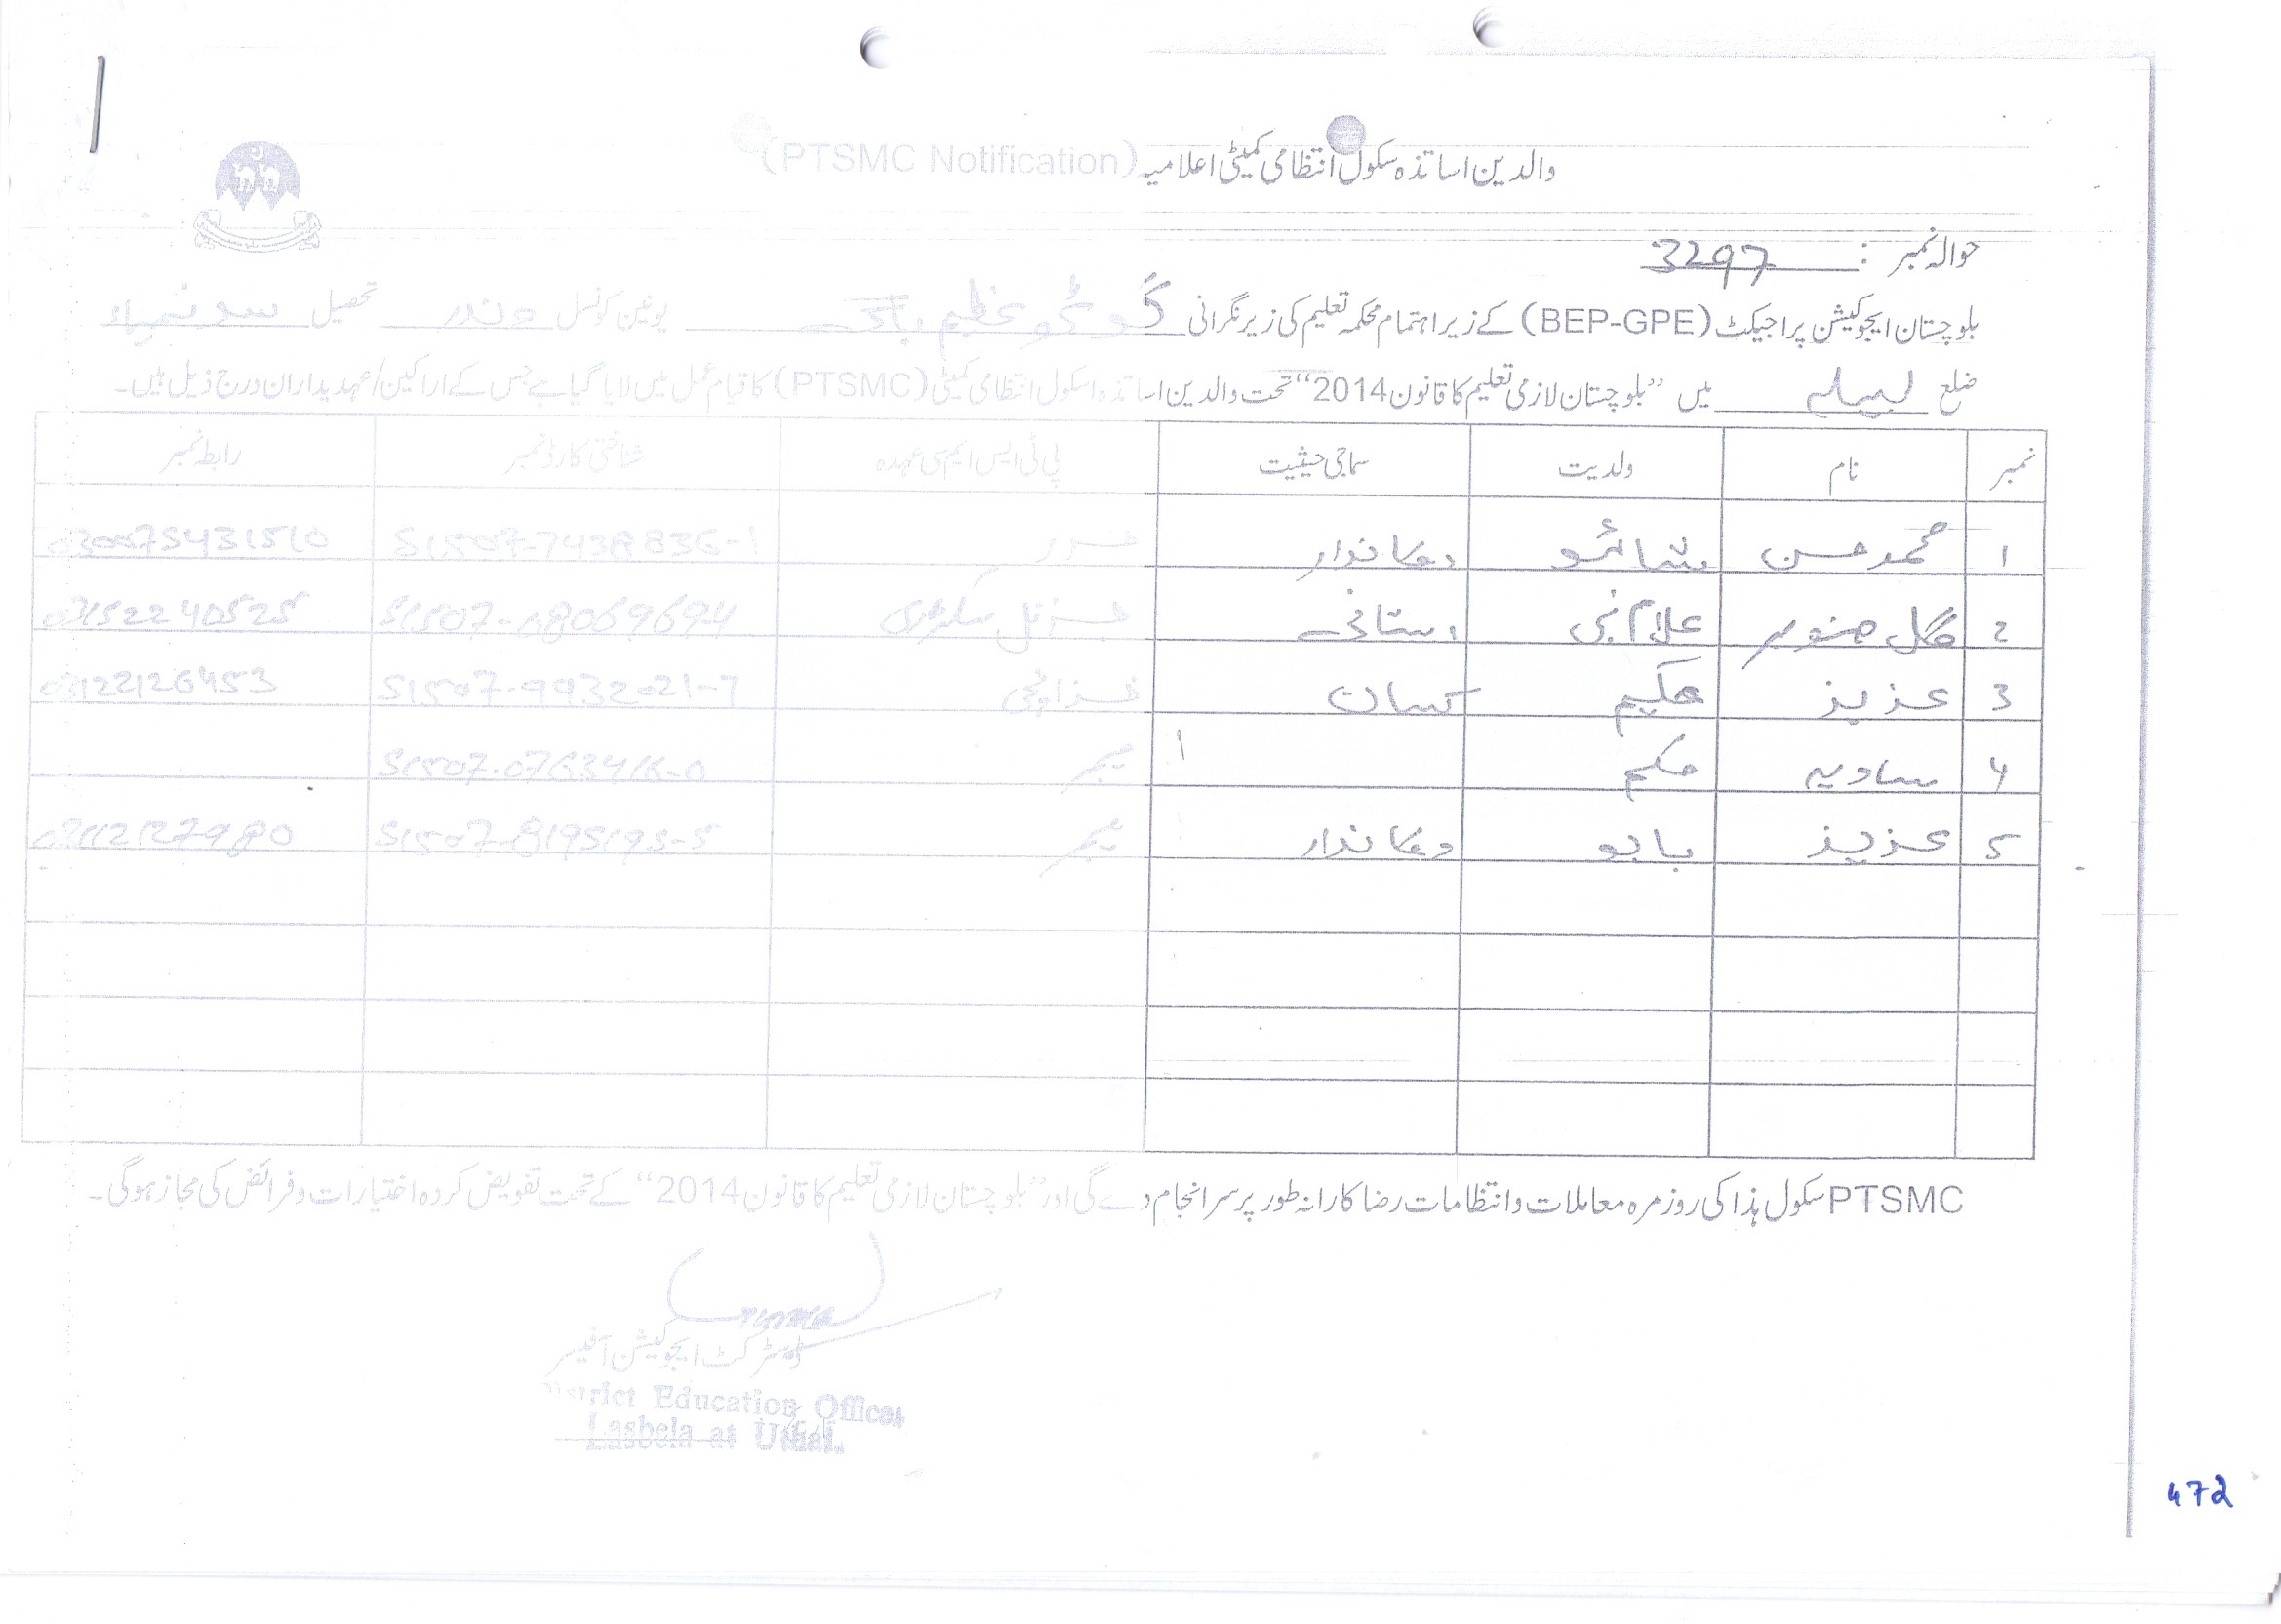 والدین اساتذہ سکول انتظامی کمیٹی اعلامیہ (PTSMC Notification)
حوالہ نمبر : 3297
بلوچستان ایجوکیشن پراجیکٹ (BEP-GPE) کے زیر اہتمام محکمہ تعلیم کی زیر نگرانی گوٹھ یونین کونسل وندر تحصیل سونمیانی
ضلع لسبیلہ میں ”بلوچستان لازمی تعلیم کا قانون 2014“ تحت والدین اساتذہ اسکول انتظامی کمیٹی (PTSMC) کا قیام عمل میں لایا گیا ہے جس کے اراکین/عہدیداران درج ذیل ہیں۔
نمبر نام ولدیت سماجی حیثیت پی ٹی ایس ایم سی عہدہ شناختی کارڈ نمبر رابطہ نمبر
1 محمد حسن دکاندار صدر 51507-7438836-1
2 گل غلام نبی جنرل سیکرٹری 03152240525
3 عزیز حکیم کسان خزانچی 51507-9932021-7 03122126453
4 حکیم ممبر 51507-0763416-0
5 عزیز بابو دکاندار ممبر 51507-8195195-5
PTSMC سکول ہذا کی روزمرہ معاملات و انتظامات رضا کارانہ طور پر سرانجام دے گی اور ”بلوچستان لازمی تعلیم کا قانون 2014“ کے تحت تفویض کردہ اختیارات و فرائض کی مجاز ہوگی۔
ڈسٹرکٹ ایجوکیشن آفیسر
District Education Officer
Lasbela at Uthal.
472